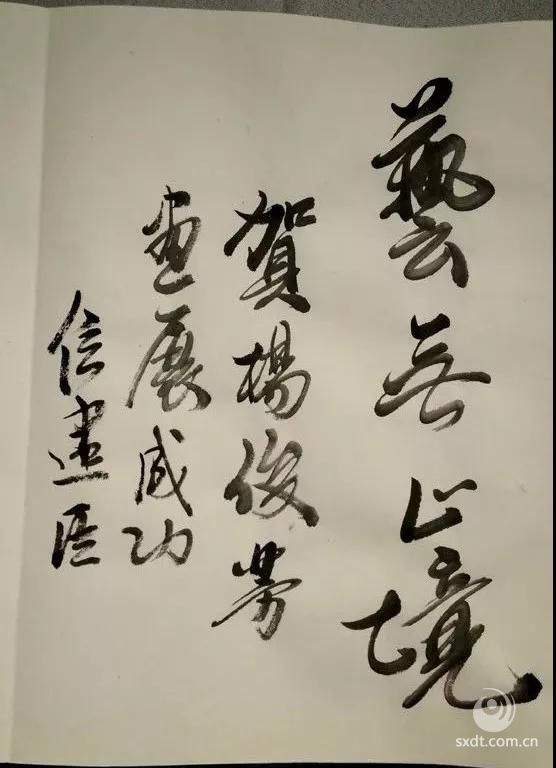 藝無止境
賀楊俊勞
畫展成功
信建臣
sxdt.com.cn